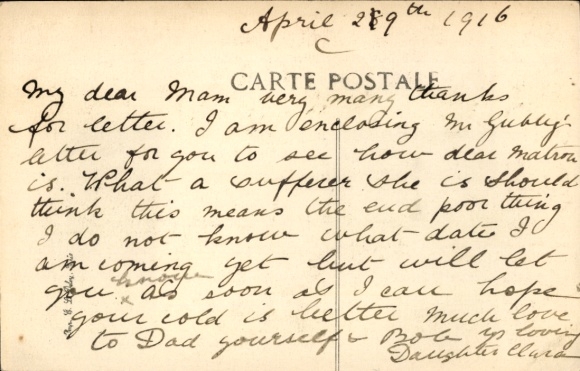 April 29th 1916
CARTE POSTALE
My dear Mam very many thanks
for letter. I am enclosing Mr Gubby's
letter for you to see how dear Matron
is. What a sufferer she is should
think this means the end poor thing
I do not know what date I
am coming yet but will let
you know as soon as I can hope
your cold is better much love
to Dad yourself & Bob yr loving
Daughter Clara